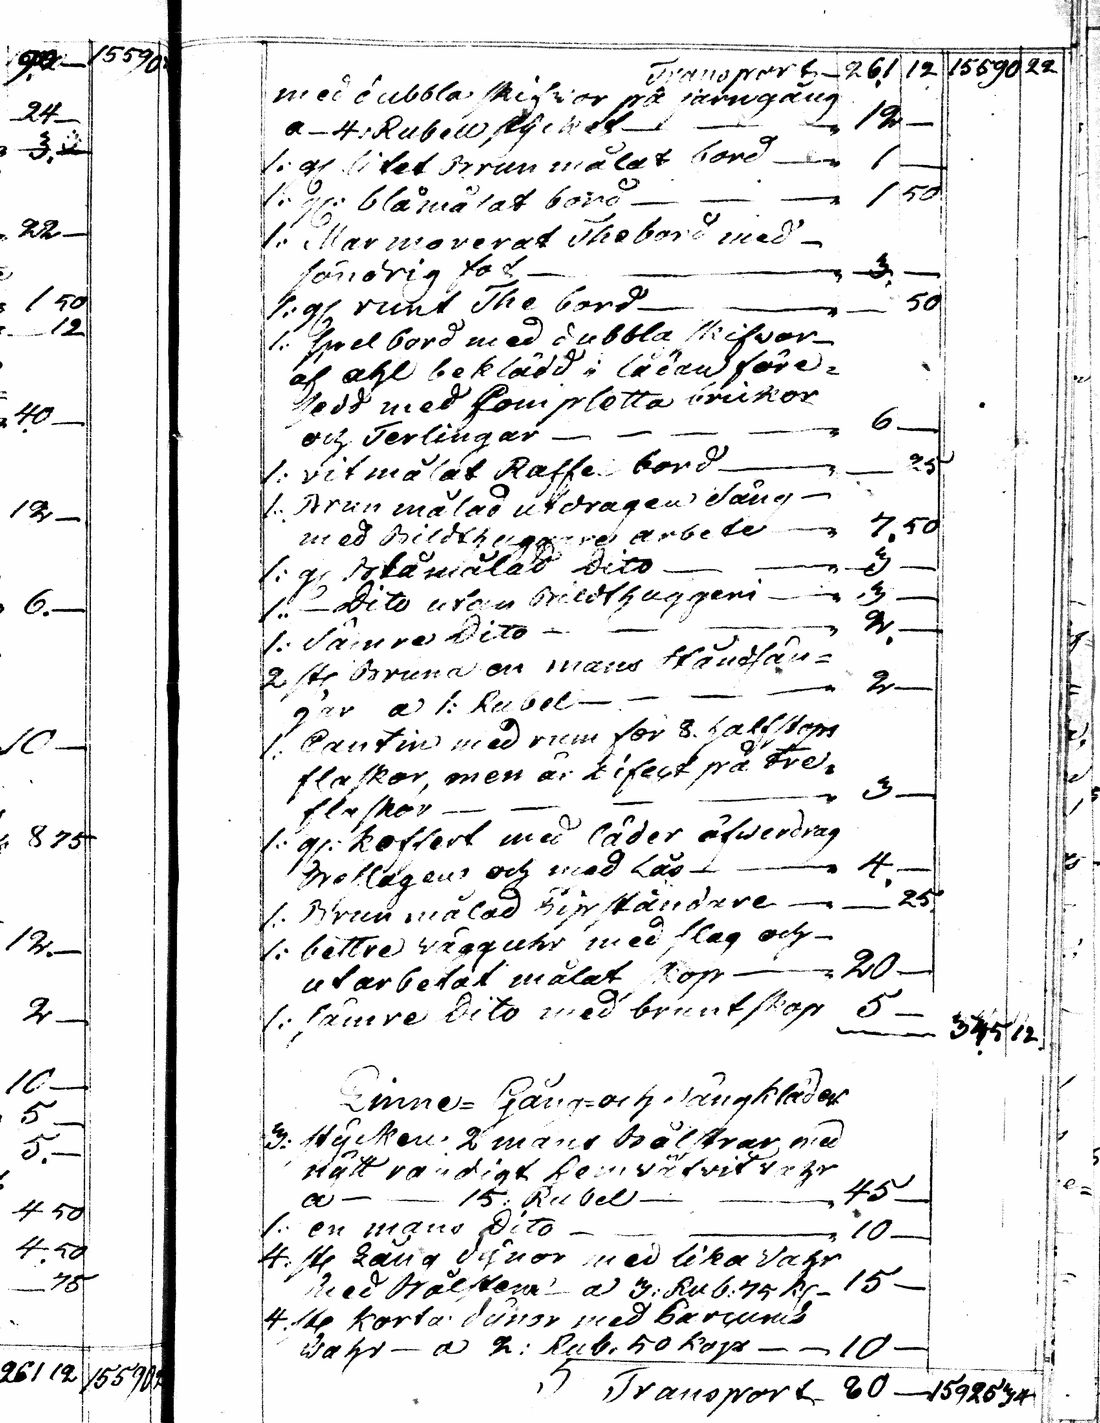 92 — 15590
24 —
3.
22 —
1 50
12
40 —
12 —
6. —
10 —
8 75
12. —
2 —
10 —
5 —
5. —
4 50
4. 50
— 75
261 12 15590
Transport — 261 12 15590 22
med dubbla skifvor på järngång
a — 4: Rubel stycket — — — " 12 —
1: gl litet Brun målat bord — " 1 —
1: gl: blåmålat bord — — — " 1 50
1: Marmorerat Thebord med —
söndrig fot — — " 3. —
1: gl runt The bord — — " — 50
1: Spelbord med dubbla skifvor
af ahl beklädd i lådan före=
sedd med Completta brickor
och Terlingar — — — — " 6 —
1: vitmålat Kaffe bord — " — 25
1: Brun målad utdragen Säng —
med Bildthuggare arbete — " 7. 50
1: gl Blåmålad Dito — — " 3 —
1: — Dito utan Bildthuggeri — " 3 —
1: Sämre Dito — — — " 2. —
2 st Bruna en mans ståndsän=
gar a 1: Rubel — — — " 2 —
1: Cantin med rum för 8. halfstops
flaskor, men är difect på tre
flaskor — — — — " 3 —
1: gl: Koffert med läder öfwerdrag
Beslagen och med Lås — — " 4. —
1: Brun målad Pipständare — " — 25.
1: bettre vägguhr med slag och —
utarbetat målat skåp — " 20 —
1: sämre Dito med brunt skåp 5 — 345 12.
Linne= Gång= och Sängkläder
3: stycken 2 mans Bålstrar med
nytt randigt hemväfvit vahr
a — — 15: Rubel — — " 45 —
1: en mans Dito — — " 10 —
4. st Läng dynor med lika vahr
med Bålstren a 3: Rub: 75 kp — 15 —
4. st korta dynor med
Wahr — a 2: Rub. 50 kop — — 10 —
Transport 80 — 15925 34